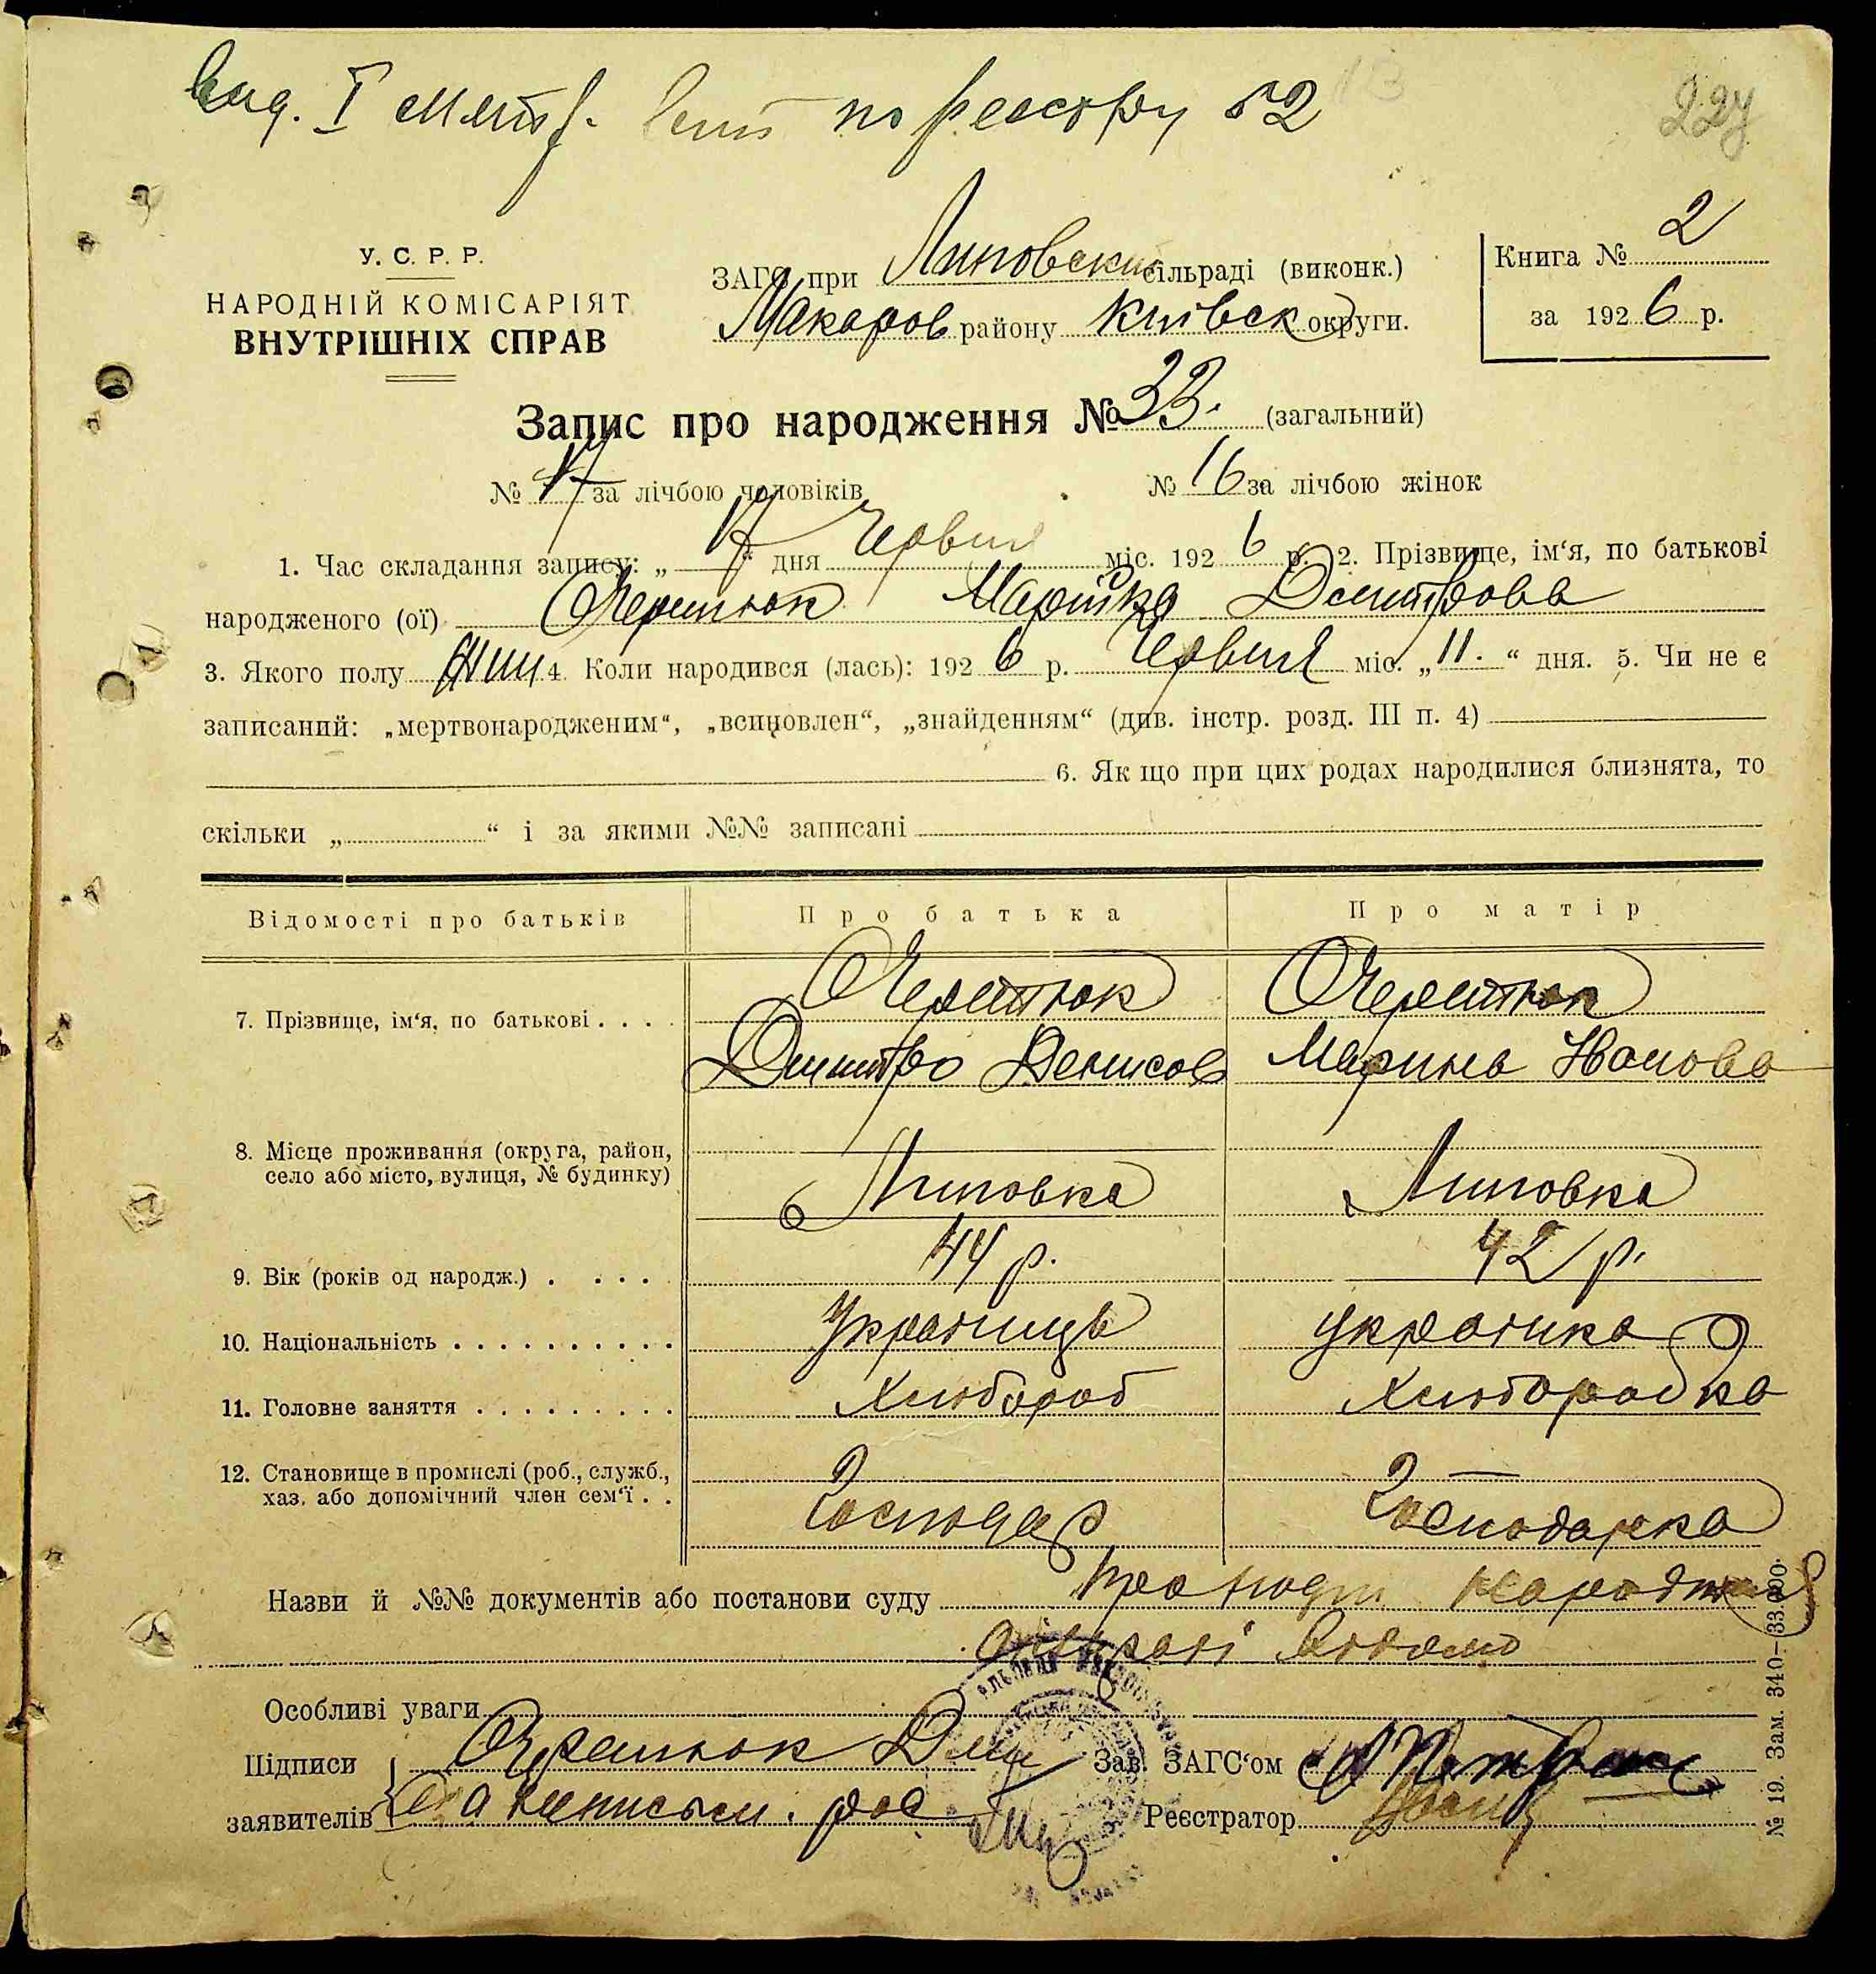 по реєстру 52
227
У. С. Р. Р.
НАРОДНІЙ КОМІСАРІЯТ
ВНУТРІШНІХ СПРАВ
ЗАГС при Липовский сільраді (виконк.)
Макаров району Київськ округи.
Книга № 2
за 1926 р.
Запис про народження № 33. (загальний)
№ 17 за лічбою чоловіків № 16 за лічбою жінок
1. Час складання запису: „17“ дня Червня міс. 1926 р. 2. Прізвище, ім‘я, по батькові
народженого (ої) Марійка Дмитрова
3. Якого полу жін 4. Коли народився (лась): 1926 р. Червня міс. „11.“ дня. 5. Чи не є
записаний: „мертвонародженим“, „всиновлен“, „знайденням“ (див. інстр. розд. III п. 4)
6. Як що при цих родах народилися близнята, то
скільки „ “ і за якими №№ записані
Відомості про батьків Про батька Про матір
7. Прізвище, ім‘я, по батькові . . . .
Дмитро Денисов Марина
8. Місце проживання (округа, район,
село або місто, вулиця, № будинку)
Липовка Липовка
9. Вік (років од народж.) . . . . 44 р. 42 р.
10. Національність . . . . . . . . . . Українець Українка
11. Головне заняття . . . . . . . . . Хлібороб Хліборобка
12. Становище в промислі (роб., служб.,
хаз. або допомічний член сем‘ї . .
Господар Господарка
Назви й №№ документів або постанови суду
Особливі уваги
Підписи
заявителів
Зав. ЗАГС‘ом
Реєстратор
№ 19. Зам. 340—33.000.